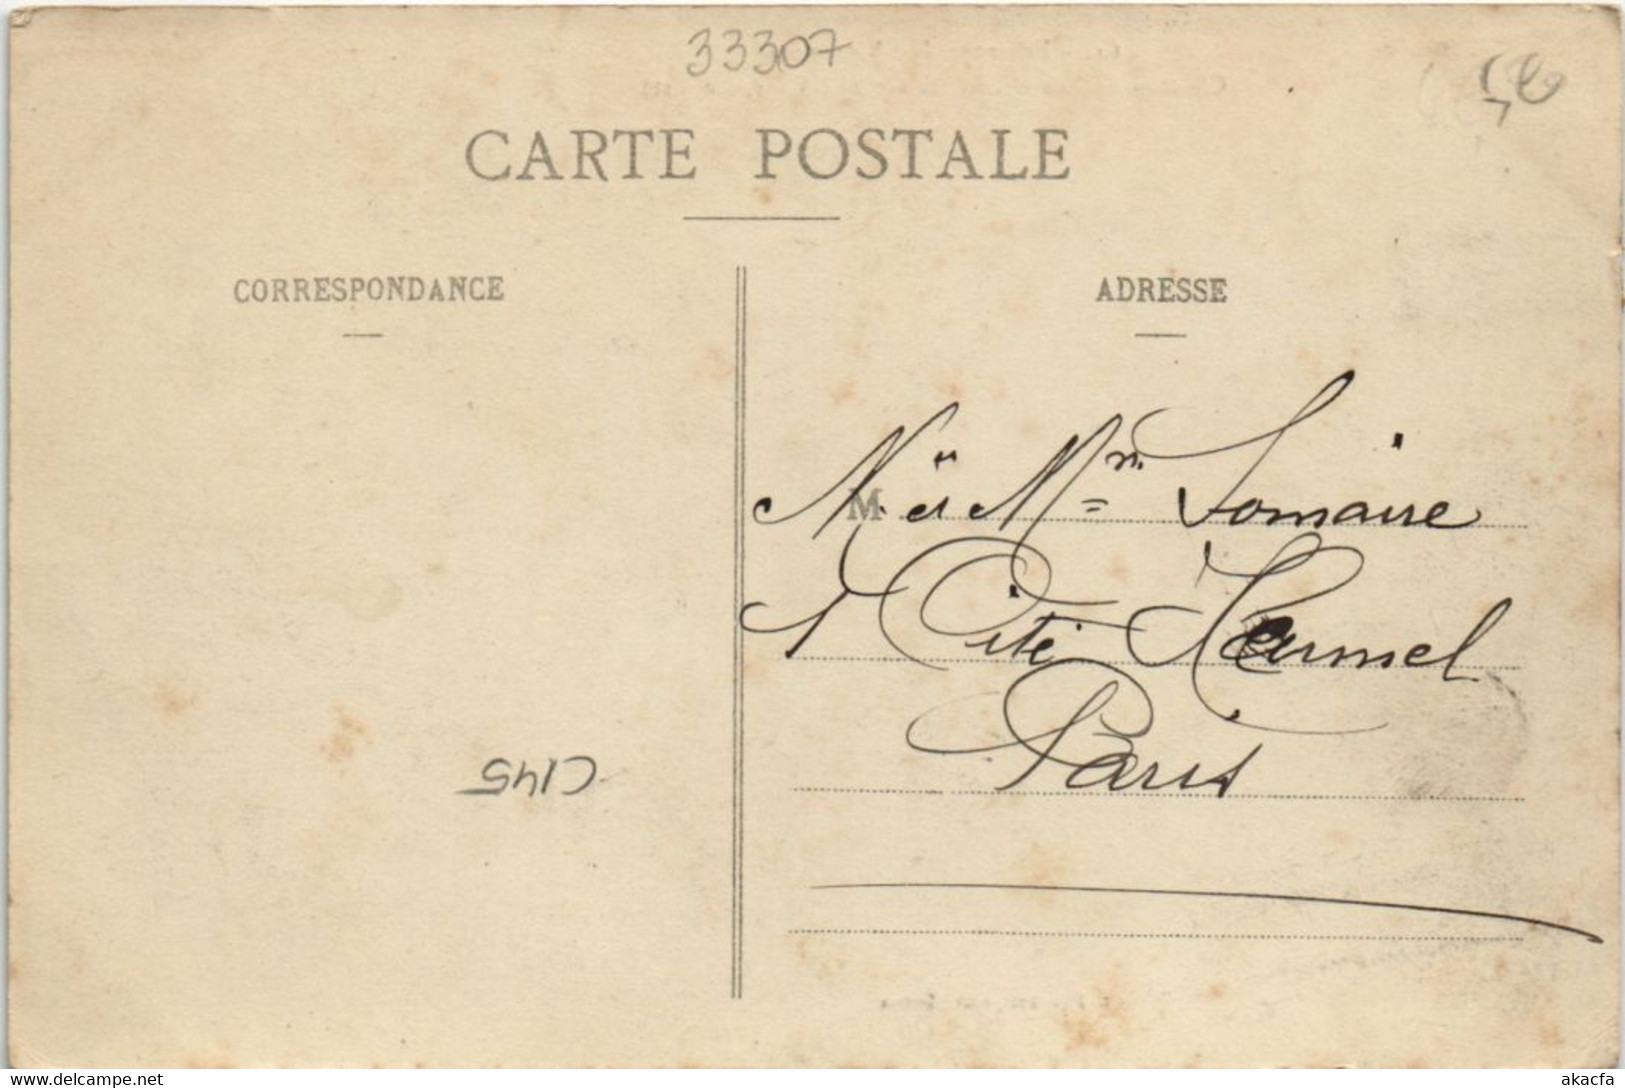 33307
50
CARTE POSTALE
CORRESPONDANCE
ADRESSE
M. et Mme Lomaire
1 Cité Hermel
Paris
C145
www.delcampe.net
akacfa